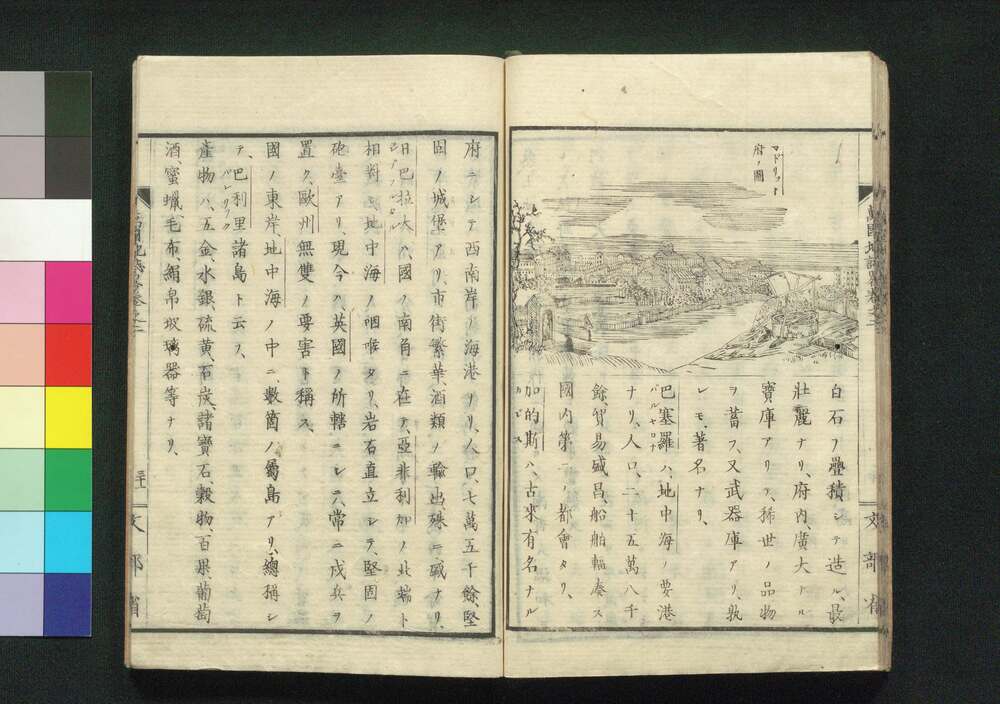 マドリット
府ノ圖
白石ヲ疊積シテ造ル、最
壯麗ナリ、府内、廣大ナル
寶庫アリテ、稀世ノ品物
ヲ蓄フ、又武器庫アリ、孰
レモ、著名ナリ、
巴塞羅ハ、地中海ノ要港
バルセロナ
ナリ、人口、二十五萬八千
餘、貿易盛昌、船舶輻湊ス
國内第二ノ都會タリ、
加的斯ハ、古來有名ナル
カヂス
府ニシテ西南岸ノ海港ナリ、人口、七萬五千餘、堅
固ノ城堡アリ、市街繁華、酒類ノ輸出、殊ニ碱ナリ、
日巴拉大ハ、國ノ南角ニ在テ、亞非利加ノ北端ト
相對シ、地中海ノ咽喉タリ、岩石直立シテ、堅固ノ
砲臺アリ、現今ハ、英國ノ所轄ニシテ、常ニ戍兵ヲ
置ク、歐州無雙ノ要害ト稱ス、
國ノ東岸、地中海ノ中ニ、數箇ノ島アリ、總稱シ
テ、巴利里諸島ト云フ、
バレリック
產物ハ、五金、水銀、硫黄、石炭、諸寶石、穀物、百果、葡萄
酒、蜜蠟、毛布、絹帛、玻璃器等ナリ、
文部省